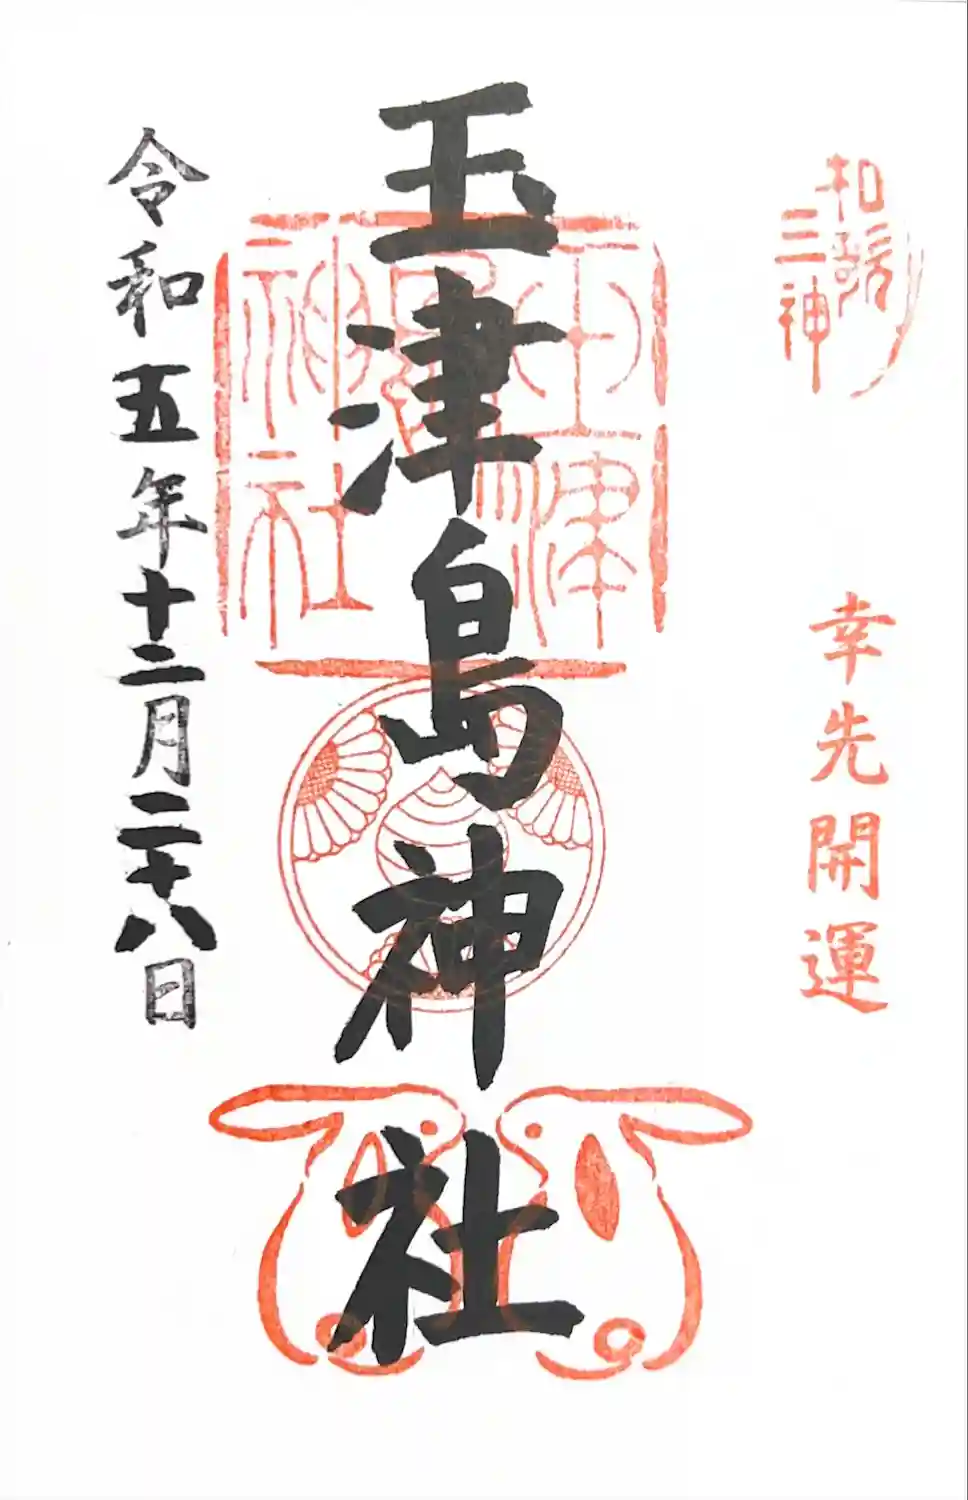 和歌
三神
幸先開運
玉津島神社
玉津
島
神社
令和五年十二月二十八日